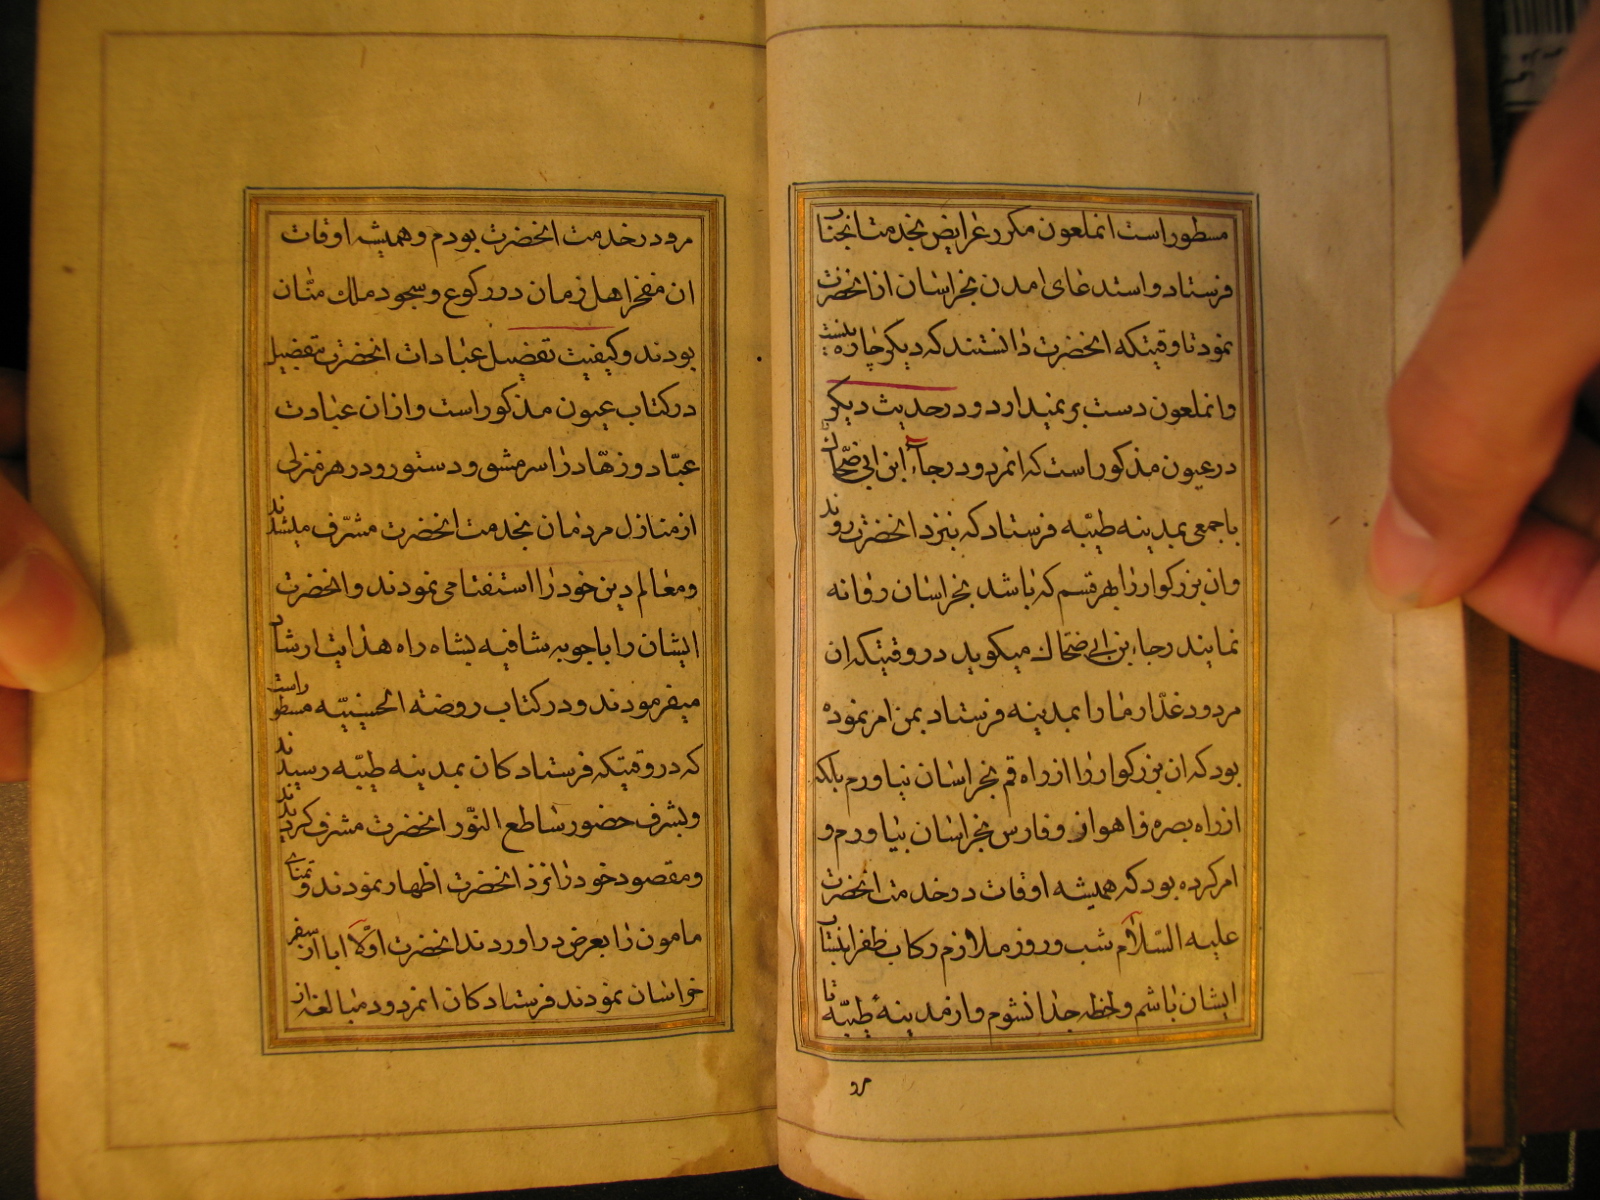 مسطور است انملعون مکرر عرایض بخدمت انجناب
فرستاد و استدعای امدن بخراسان از انحضرت
نمود تا وقتیکه انحضرت دانستند که دیکر چاره نیست
وانملعون دست بر نمیدارد و در حدیث دیکر
در عیون مذکور است که انمردود رجاء ابن ابی ضحّاک
با جمعی بمدینه طیبّه فرستاد که بنزد انحضرت روند
وان بزرکوار را بهر قسم که باشد بخراسان روانه
نمایند رجاء بن ابی ضحاک میکوید در وقتیکه ان
مردود غدّار ما را بمدینه فرستاد بمن امر نموده
بود که ان بزرکوار را از راه قم بخراسان نیاورم بلکه
از راه بصره و اهواز و فارس بخراسان بیاورم و
امر کرده بود که همیشه اوقات در خدمت انحضرت
علیه السّلام شب و روز ملازم رکاب ظفر انتساب
ایشان باشم و لحظه جدا نشوم و از مدینهٔ طیبّه تا
مرو
مرو در خدمت انحضرت بودم و همیشه اوقات
ان مفخر اهل زمان در رکوع و سجود ملک منّان
بودند و کیفیت تفصیل عبادات انحضرت بتفصیل
در کتاب عیون مذکور است و از ان عبادت
عبّاد و زهّاد را سر مشق و دستور و در هر منزلی
از منازل مردمان بخدمت انحضرت مشرّف میشدند
و معالم دین خود را استفتا می نمودند و انحضرت
ایشان را با جوبه شافیه بشاه راه هدایت ارشاد
میفرمودند و در کتاب روضة الحسینیّه مسطور است
که در وقتیکه فرستادکان بمدینه طیبّه رسیدند
و بشرف حضور ساطع النّور انحضرت مشرف کردیدند
و مقصود خود را نزد انحضرت اظهار نمودند و تمنای
مامون را بعرض در اوردند انحضرت اوّلا ابا از سفر
خراسان نمودند فرستادکان انمردود مبالغه از